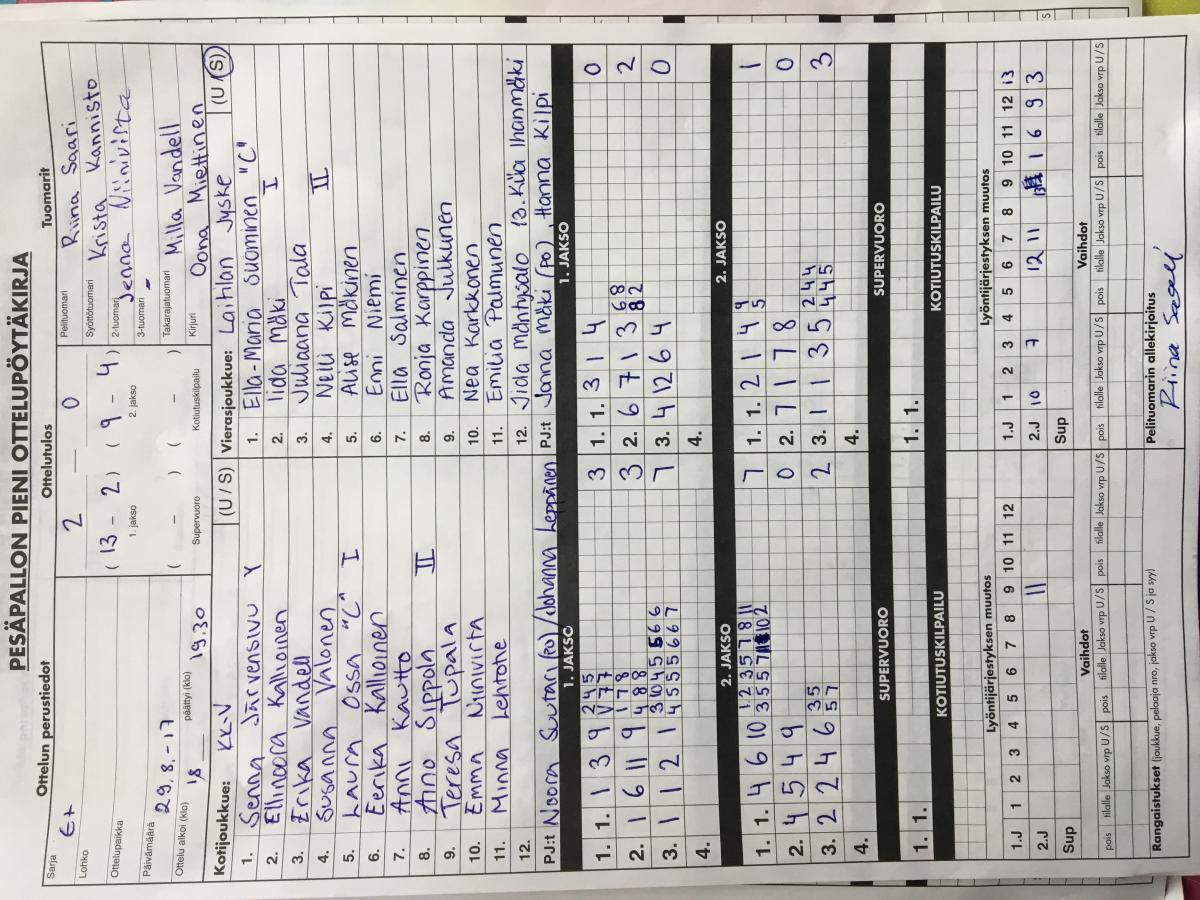 PESÄPALLON PIENI OTTELUPÖYTÄKIRJA
Ottelun perustiedot
Sarja E+
Lohko
Ottelupaikka
Päivämäärä 29.8.-17
Ottelu alkoi (klo) 18 päättyi (klo) 19.30
Ottelutulos
2 0
( 13 - 2 ) ( 9 - 4 )
1. jakso 2. jakso
( - ) ( - )
Supervuoro Kotiutuskilpailu
Tuomarit
Pelituomari Riina Saari
Syöttötuomari Krista Kannisto
2-tuomari Jenna Niinivirta
3-tuomari -
Takarajatuomari Milla Vandell
Kirjuri Oona Miettinen
Kotijoukkue: KK-V (U / S)
1. Senna Järvensivu Y
2. Ellinoora Kalloinen
3. Erika Vandell
4. Susanna Valonen
5. Laura Ossa "C" I
6. Eerika Kalloinen
7. Anni Kautto
8. Aino Sippola II
9. Teresa Tupala
10. Emma Niinivirta
11. Minna Lehtone
12.
PJ:t Noora Suutari (PO) / Johanna Leppänen
Vierasjoukkue: Laitilan Jyske (U / S)
1. Ella-Maria Suominen "C"
2. Iida Mäki I
3. Juliaana Tala
4. Nelli Kilpi II
5. Alise Mäkinen
6. Enni Niemi
7. Ella Salminen
8. Ronja Karppinen
9. Amanda Julkunen
10. Nea Karkkonen
11. Emilia Palmunen
12. Iida Mäntysalo 13. Kiia Ihanmäki
PJ:t Janna Mäki (PO), Hanna Kilpi
1. JAKSO 1. JAKSO
1. 1. 1 3 9 3
2 4 5
1 7 7
2. 1 6 11 9 3
1 7 8
4 8 8
3. 1 1 2 1 7
3 10 4 5 5 6 6
4 5 5 5 6 6 7
4.
1. 1. 3 1 4 0
2. 6 7 1 3 2
6 8
8 2
3. 4 12 6 4 0
4.
2. JAKSO 2. JAKSO
1. 1. 4 6 10 7
1 2 3 5 7 8 11
3 5 5 7 10 2
2. 4 5 4 9 0
3. 2 2 4 6 2
3 5
5 7
4.
1. 1. 2 1 4 1
9
5
2. 7 1 7 8 0
3. 1 1 3 5 3
2 4 4
4 4 5
4.
SUPERVUORO SUPERVUORO
KOTIUTUSKILPAILU KOTIUTUSKILPAILU
1. 1. 1. 1.
Lyöntijärjestyksen muutos
1 2 3 4 5 6 7 8 9 10 11 12
1.J
2.J 11
Sup
Lyöntijärjestyksen muutos
1 2 3 4 5 6 7 8 9 10 11 12 13
1.J
2.J 10 7 12 11 1 6 9 3
Sup
Vaihdot Vaihdot
pois tilalle Jakso vrp U/S pois tilalle Jakso vrp U/S pois tilalle Jakso vrp U/S
pois tilalle Jakso vrp U/S pois tilalle Jakso vrp U/S pois tilalle Jakso vrp U/S
Rangaistukset (joukkue, pelaaja nro, jakso vrp U / S ja syy)
Pelituomarin allekirjoitus
Riina Saari